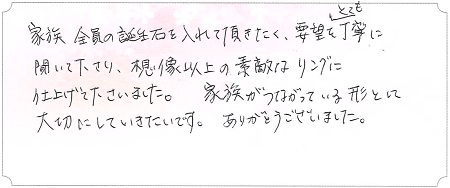 家族 全員の誕生石を入れて頂きたく、要望をとても丁寧に
聞いて下さり、想像以上の素敵なリングに
仕上げて下さいました。 家族がつながっている形として
大切にしていきたいです。 ありがとうございました。